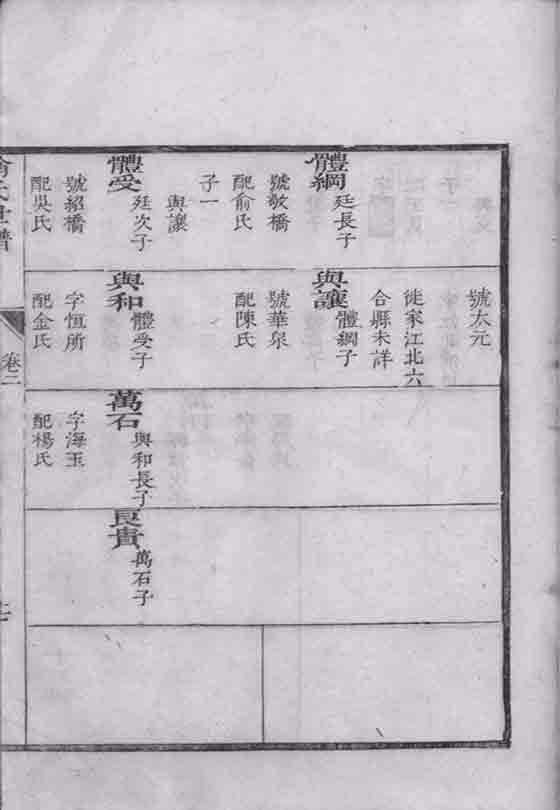 體綱
廷長子
號敬橋
配俞氏
子一
與讓
體受
廷次子
號紹橋
配吳氏
號太元
徙家江北六
合縣未詳
與讓
體綱子
號華泉
配陳氏
與和
體受子
字恒所
配金氏
萬石
與和長子
字海玉
配楊氏
良貴
萬石子
氏世譜
卷二